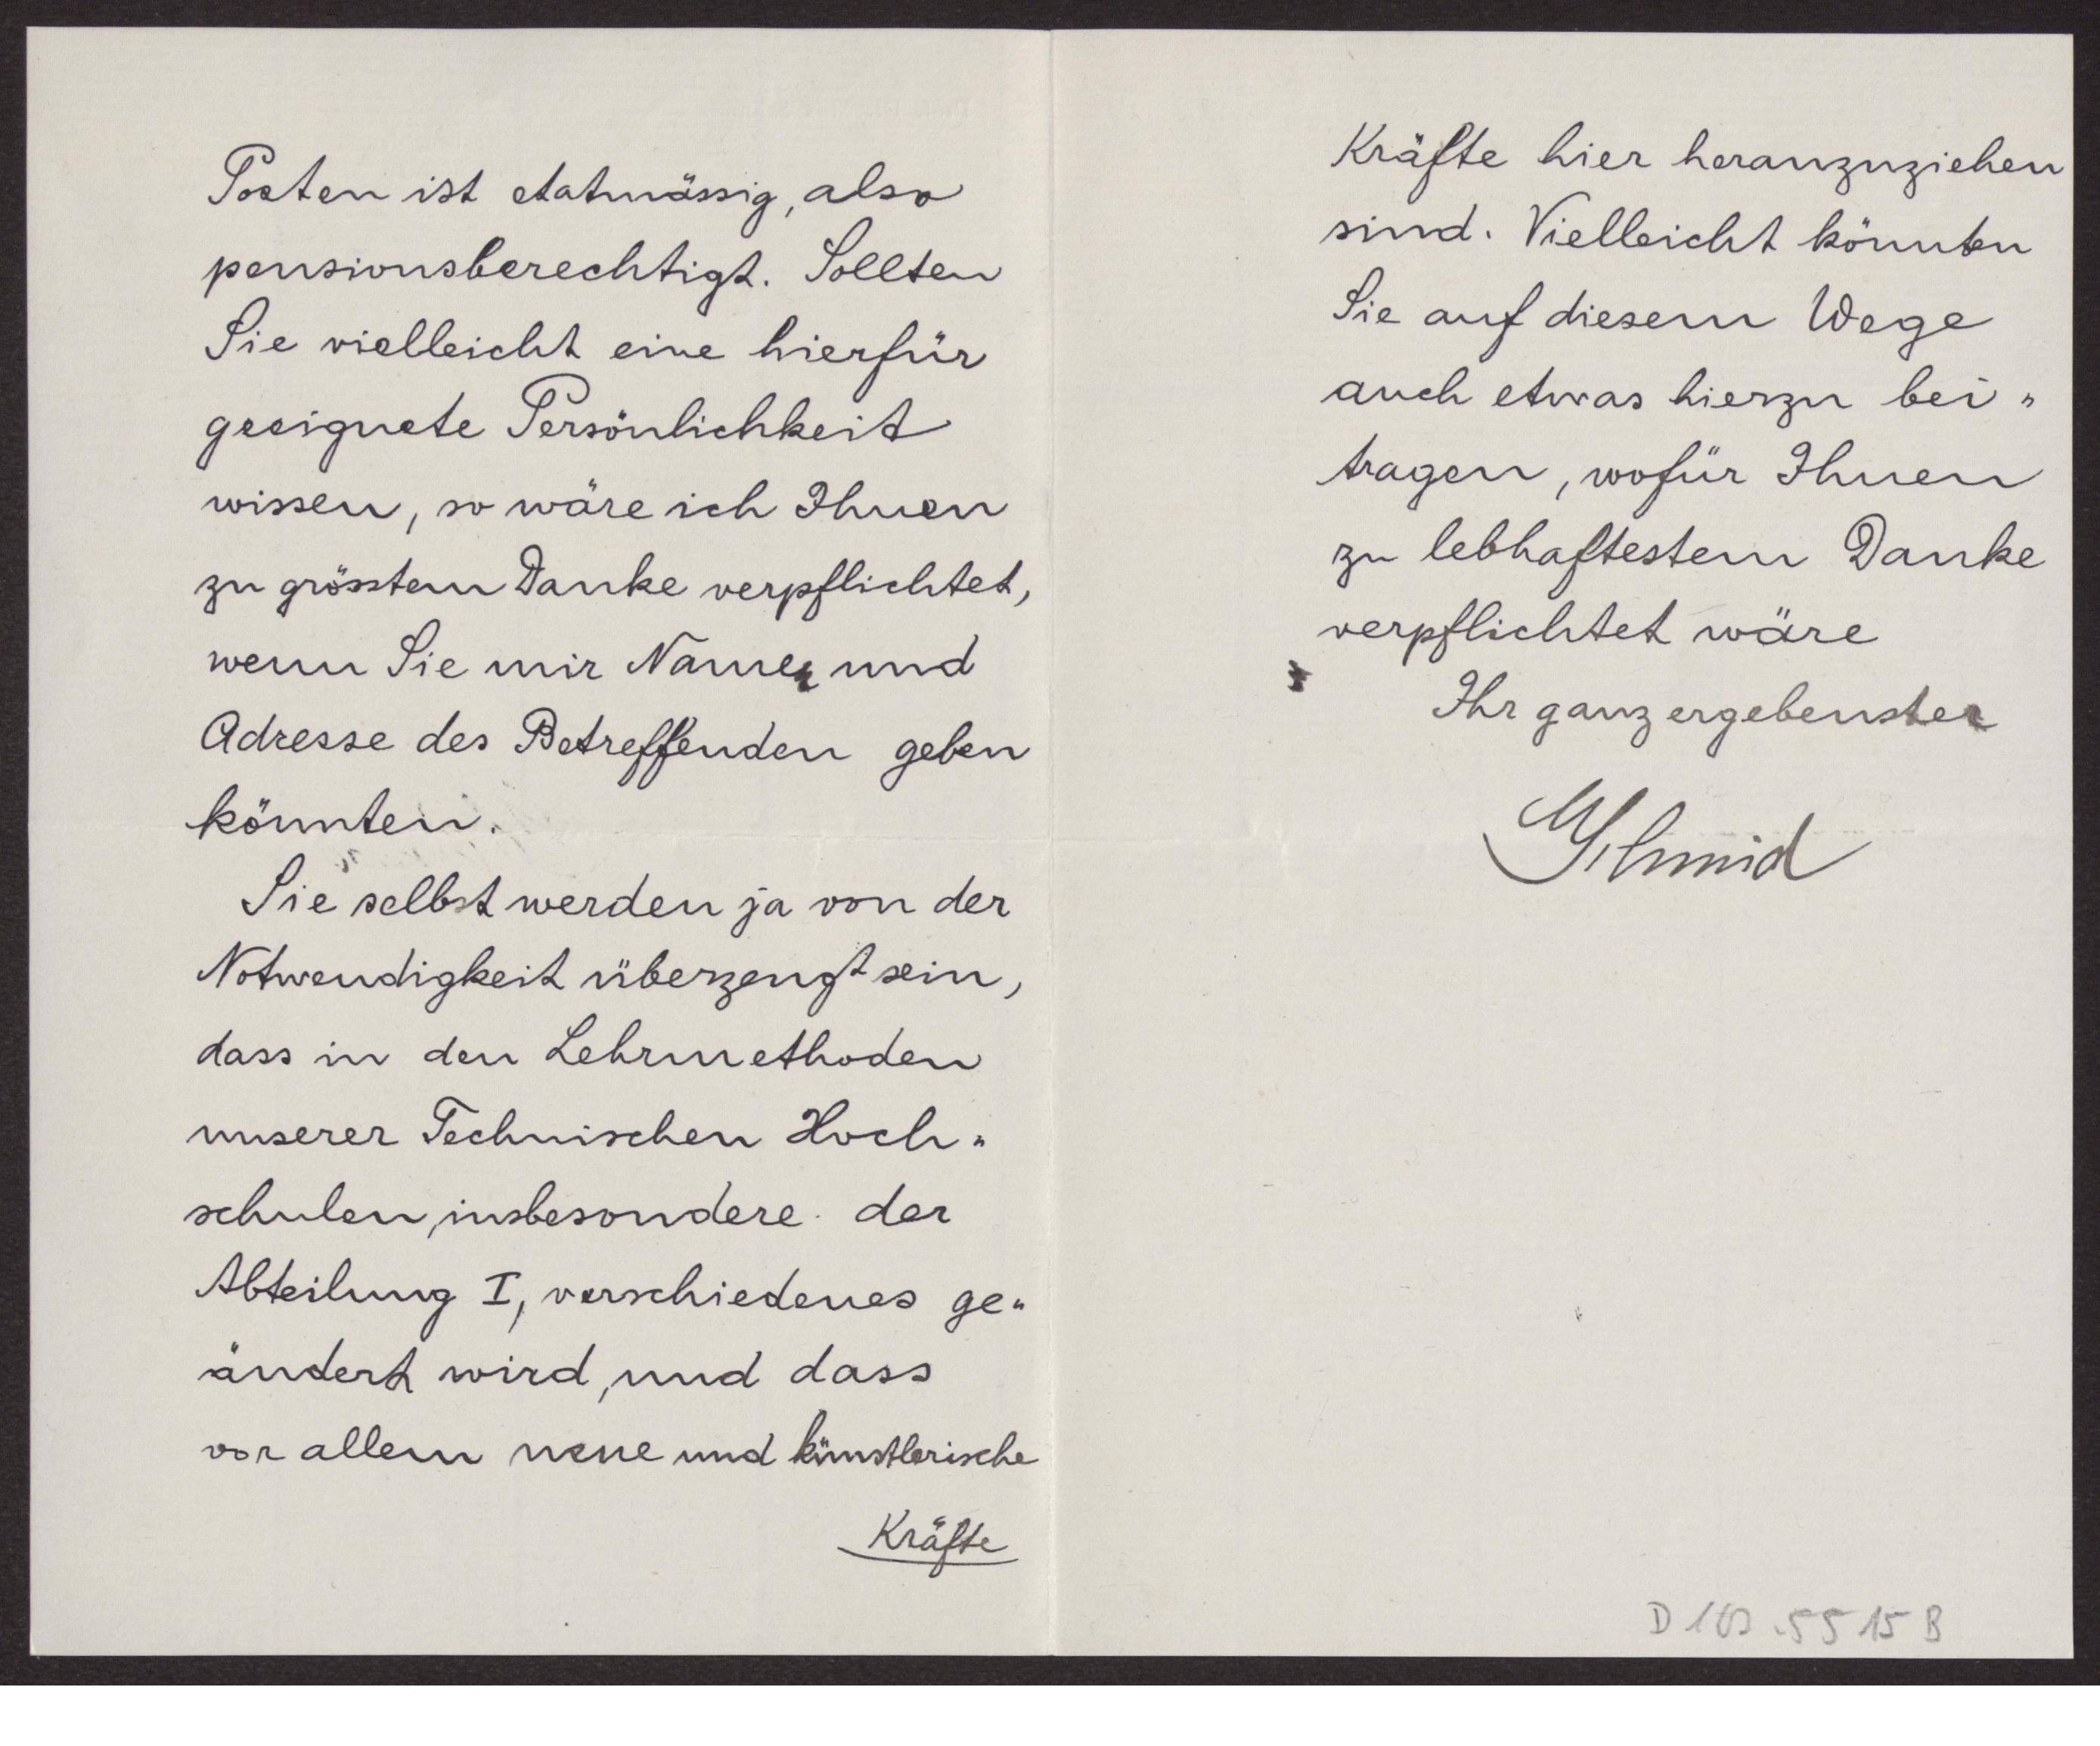 Posten ist etatmässig, also
pensionsberechtigt. Sollten
Sie vielleicht eine hierfür
geeignete Persönlichkeit
wissen, so wäre ich Ihnen
zu grösstem Danke verpflichtet,
wenn Sie mir Namen und
Adresse des Betreffenden geben
könnten.
Sie selbst werden ja von der
Notwendigkeit überzeugt sein,
dass in den Lehrmethoden
unserer Technischen Hoch"
schulen, insbesondere der
Abteilung I, verschiedenes ge"
ändert wird, und dass
vor allem neue und künstlerische
Kräfte
Kräfte hier heranzuziehen
sind. Vielleicht könnten
Sie auf diesem Wege
auch etwas hierzu bei"
tragen, wofür Ihnen
zu lebhaftestem Danke
verpflichtet wäre
Ihr ganz ergebenster
Schmid